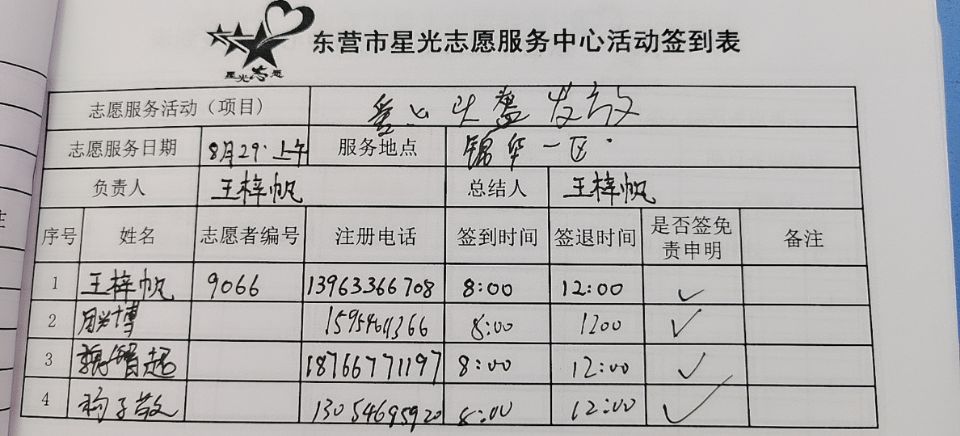 星光志愿
东营市星光志愿服务中心活动签到表
志愿服务活动（项目） 爱心头盔发放
志愿服务日期 8月29·上午 服务地点 锦华一区·
负责人 王梓帆 总结人 王梓帆
序号 姓名 志愿者编号 注册电话 签到时间 签退时间 是否签免责申明 备注
1 王梓帆 9066 13963366708 8:00 12:00 ✓
2 8:00 1200 ✓
3 18766771197 8:00 12:00 ✓
4 13054695920 8:00 12:00 ✓